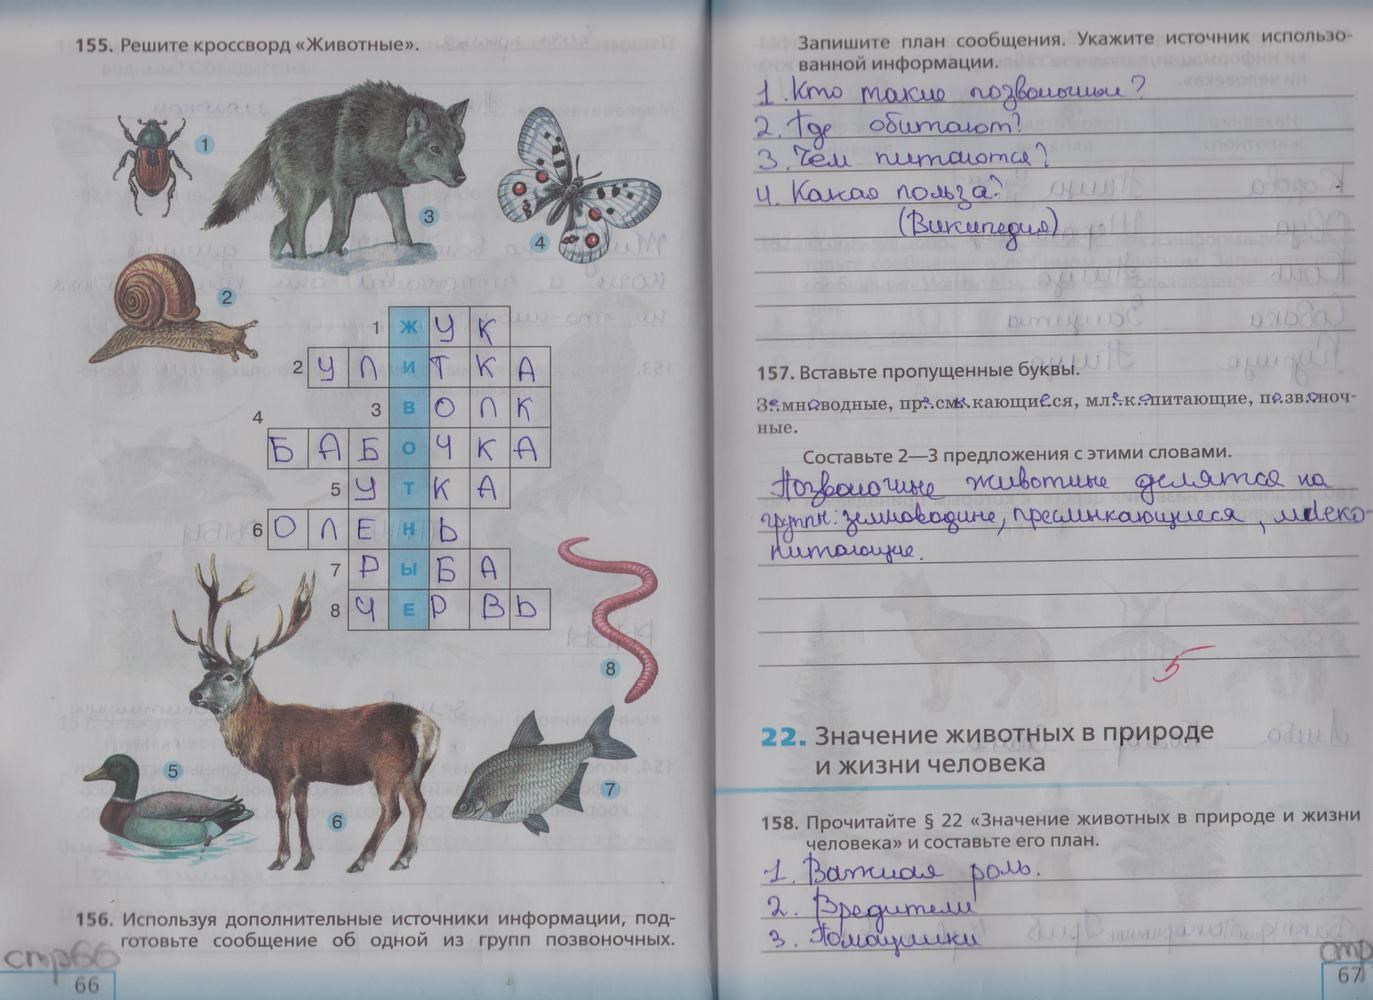 155. Решите кроссворд «Животные».
1
3
4
2
1 ЖУК
2 УЛИТКА
3 ВОЛК
4 БАБОЧКА
5 УТКА
6 ОЛЕНЬ
7 РЫБА
8 ЧЕРВЬ
8
5
6
7
156. Используя дополнительные источники информации, под-
готовьте сообщение об одной из групп позвоночных.
стр66
66
Запишите план сообщения. Укажите источник использо-
ванной информации.
1. Кто такие позвоночные?
2. Где обитают?
3. Чем питаются?
4. Какая польза?
(Википедия)
157. Вставьте пропущенные буквы.
Земноводные, пресмыкающиеся, млекопитающие, позвоноч-
ные.
Составьте 2—3 предложения с этими словами.
Позвоночные животные делятся на
группы: земноводные, пресмыкающиеся, млеко-
питающие.
5
22. Значение животных в природе
и жизни человека
158. Прочитайте § 22 «Значение животных в природе и жизни
человека» и составьте его план.
1. Важная роль.
2. Вредители
3. Помощники
стр
67